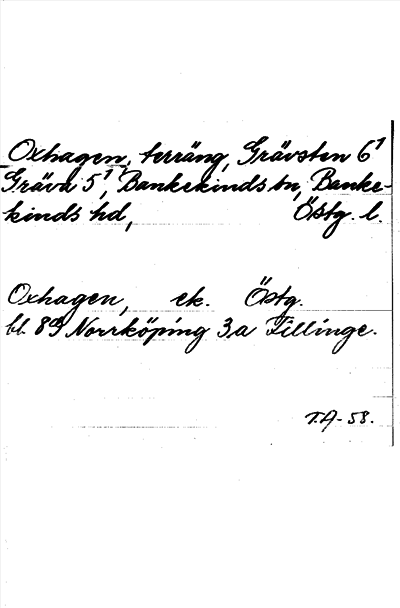 Oxhagen, terräng, Grävsten 6¹
Gräva 5¹, Bankekinds sn, Banke-
kinds hd, Östg. l.
Oxhagen, ek. Östg.
bl. 89 Norrköping 3a Fillinge.
T.A-58.